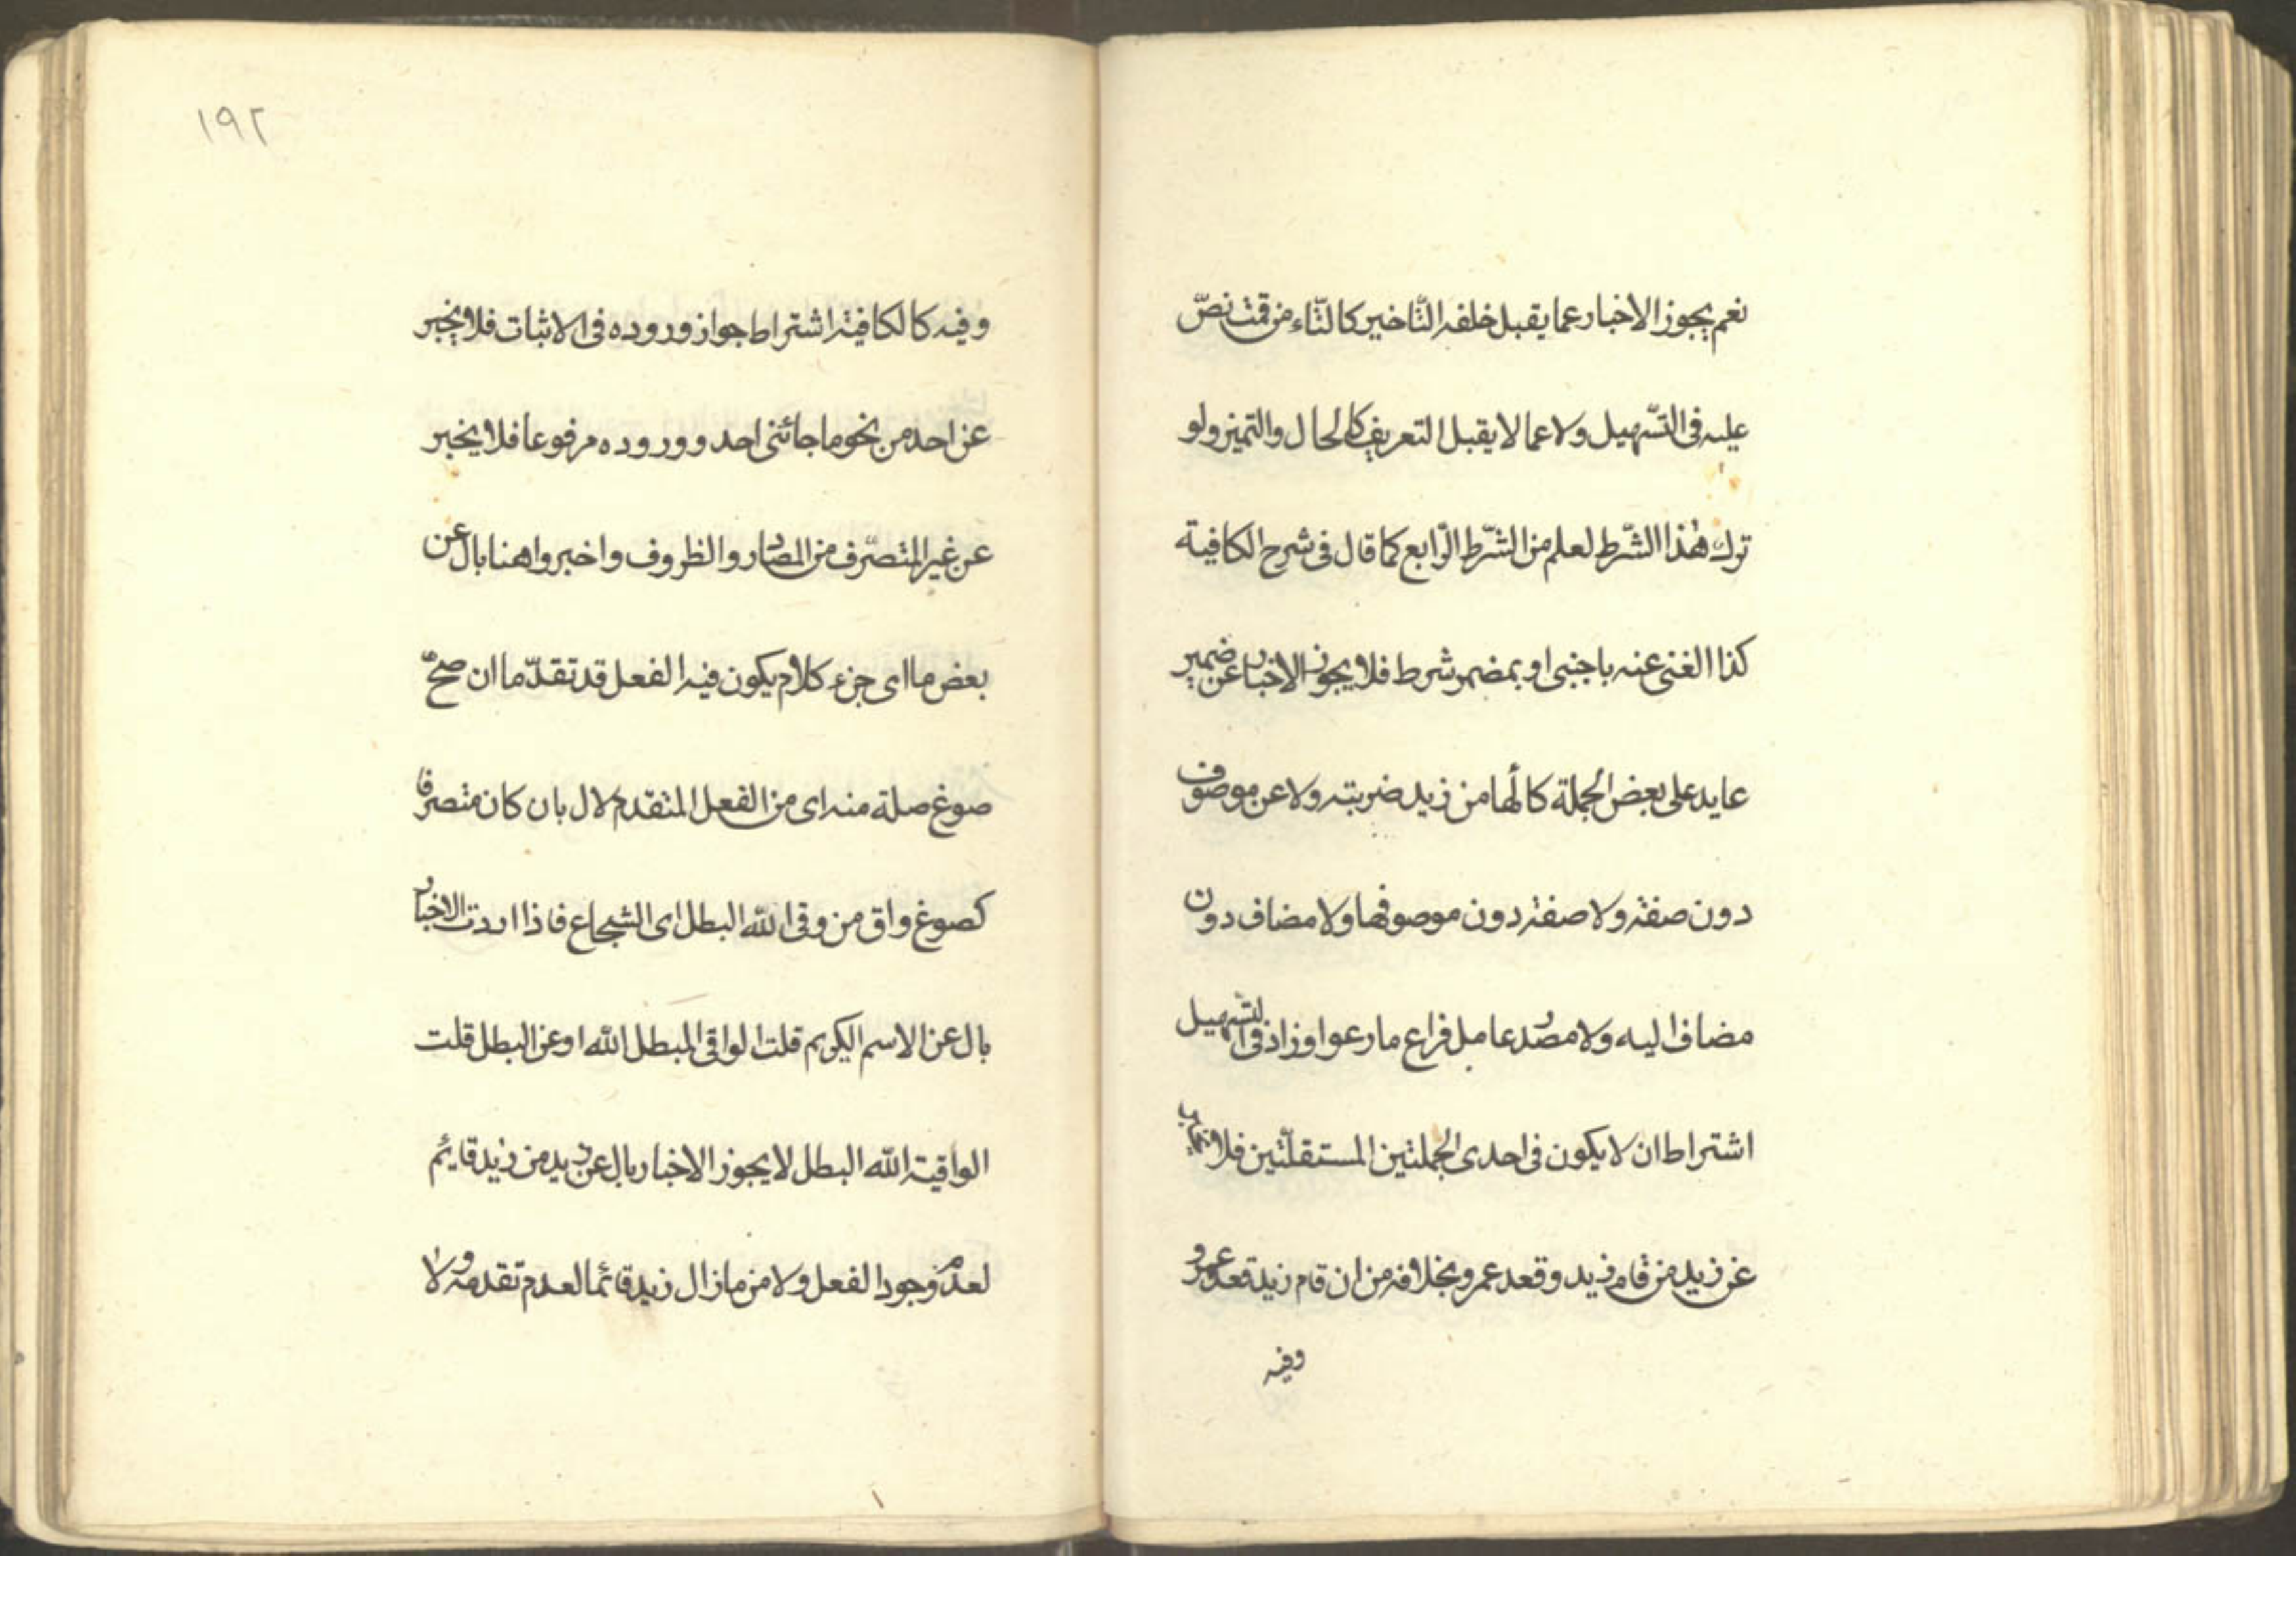 نعم يجوز الاخبار عما يقبل خلفه التّاخير كالتّاء من قمت نصّ
عليه فى التّسهيل ولا عما لا يقبل التعريف كالحال والتميز ولو
ترك هٰذا الشّرط لعلم من الشّرط الرّابع كما قال فى شرح الكافية
كذا الغنى عنه باجنبى او بمضمر شرط فلا يجوز الاخبار عن ضمير
عايد على بعض الجملة كالها من زيد ضربته ولا عن موصوف
دون صفته ولا صفته دون موصوفها ولا مضاف دون
مضاف اليه ولا مصدر عامل فراع ما رعوا وزاد فى التّسهيل
اشتراط ان لا يكون فى احدى الجملتين المستقلّتين فلا
عن زيد من قام زيد وقعد عمرو بخلافه من ان قام زيد قعد عمرو
وفيه
١٩٢
وفيه كالكافية اشتراط جواز وروده فى الاثبات فلا يخبر
عن احد من نحو ما جائنى احد ووروده مرفوعا فلا يخبر
عن غير المتصرّف من المصادر والظروف واخبروا هنا بال عن
بعض ما اى جزء كلام يكون فيه الفعل قد تقدّما ان صحّ
صوغ صلة منه اى من الفعل المتقدم لال بان كان متصرفا
كصوغ واق من وقى الله البطل اى الشجاع فاذا اردت الاخبار
بال عن الاسم الكريم قلت الواقى البطل الله او عن البطل قلت
الواقيه الله البطل لا يجوز الاخبار بال عن زيد من زيد قايم
لعدم وجود الفعل ولا من ما زال زيد قائما لعدم تقدمه ولا